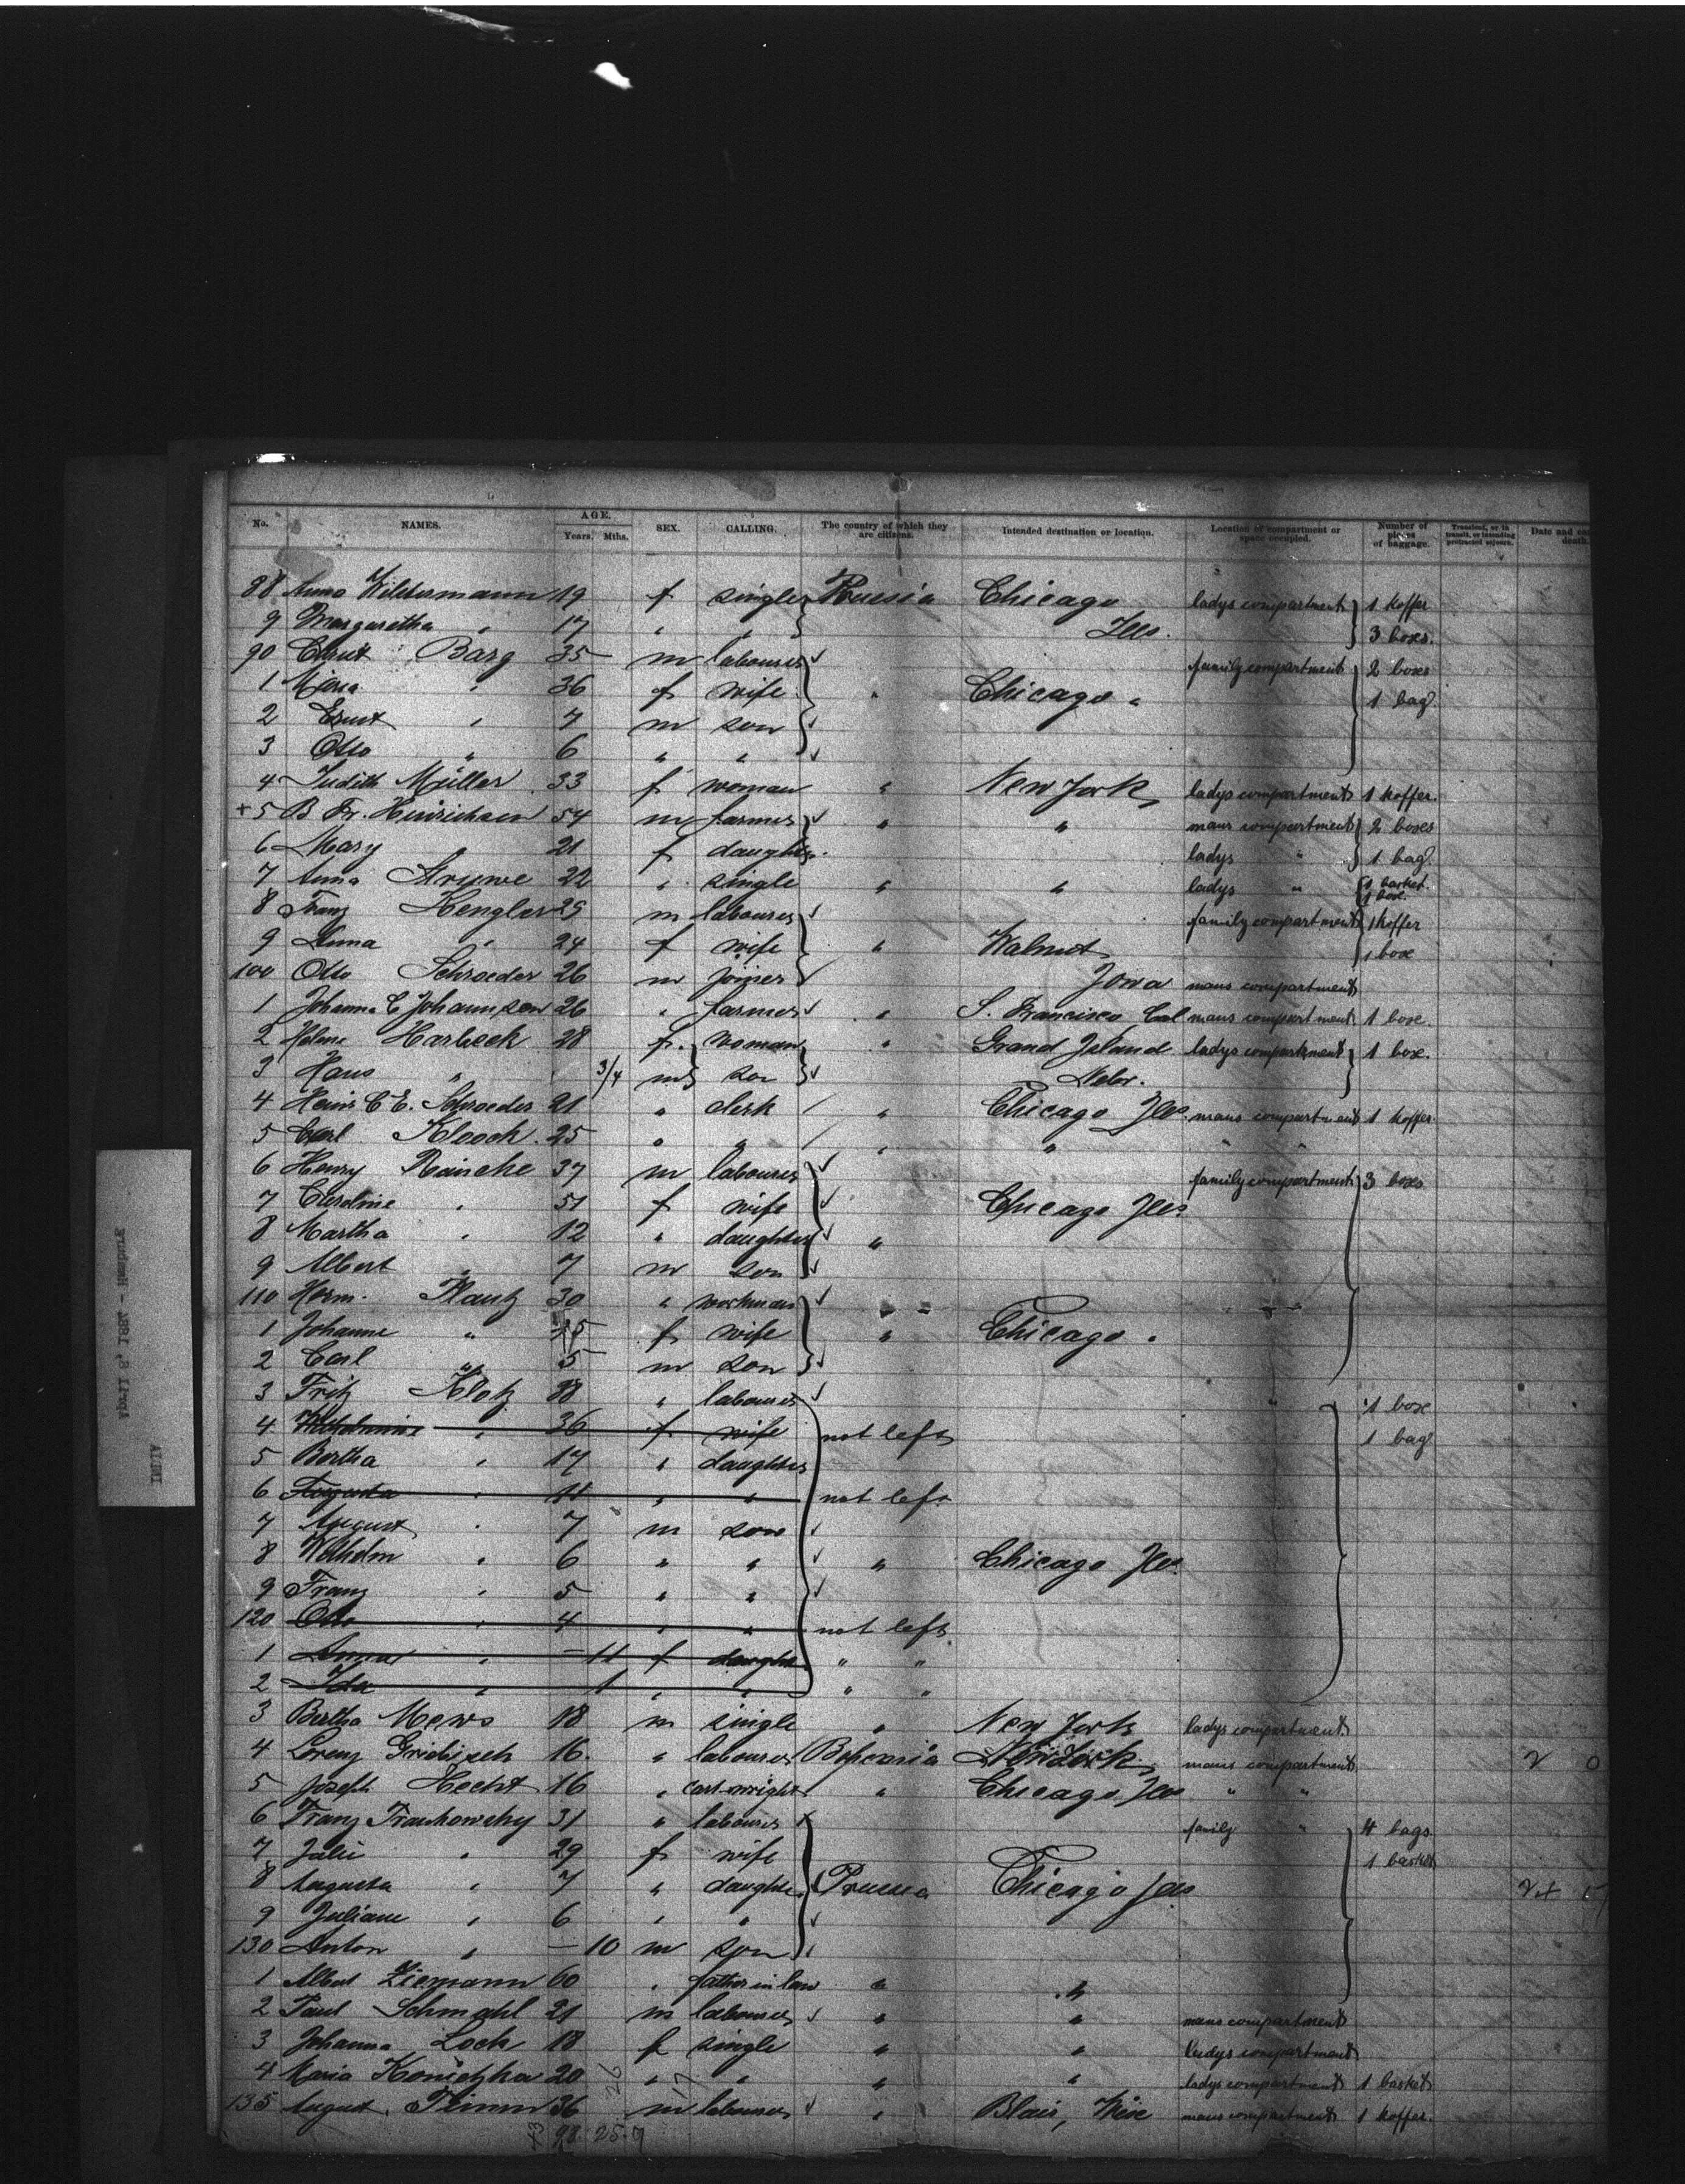 No. NAMES. AGE. Years. Mths. SEX. CALLING. The country of which they are citizens. Intended destination or location. Location of compartment or space occupied. Number of pieces of baggage. Transient, or in transit, or intending protracted sojourn. Date and death.
88 Anna Wildermann 19 f single Prussia Chicago ladys compartment 1 Koffer
9 Margaretha " 17 " " Ills. 3 boxes.
90 Ernst Barg 35 m labourer family compartment 2 boxes
1 Maria " 36 f wife " Chicago " 1 bag
2 Ernst " 7 m son
3 Otto " 6 " "
4 Judith Müller 33 f woman " New York ladys compartment 1 Koffer.
+5 B Fr. Hinrichsen 54 m farmer " " mans compartment 2 boxes
6 Mary 21 f daughter ladys " 1 bag
7 Anna Struwe 22 " single " " ladys " 1 basket. 1 box.
8 Franz Kengler 29 m labourer family compartment 1 Koffer
9 Anna " 24 f wife " Walnut 1 box
100 Otto Schroeder 26 m joiner Jowa mans compartment
1 Johann C Johannsen 26 " farmer " S. Francisco Cal mans compartment 1 box.
2 Helene Harbeck 28 f. woman " Grand Island ladys compartment 1 box.
3 Hans " 3/4 m son Nebr.
4 Heinr C E. Schroeder 21 " clerk " Chicago Ills. mans compartment 1 Koffer
5 Carl Kloock 25 " " " " "
6 Henry Reincke 37 m labourer family compartment 3 boxes
7 Caroline " 51 f wife Chicago Ills
8 Martha " 12 " daughter "
9 Albert " 7 m son
110 Herm. Plautz 30 " workman
1 Johanne " f wife " Chicago "
2 Carl " 5 m son
3 Fritz Klotz 38 " labourer " 1 box
4 Wilhelmine " 36 f wife not left 1 bag
5 Bertha " 17 " daughter
6 Augusta " 11 " " not left
7 August " 7 m son
8 Wilhelm " 6 " " " Chicago Ills.
9 Franz " 5 " "
120 Otto " 4 " " not left
1 Anna " – 11 f daughter " "
2 Ida " 1 " " " "
3 Bertha Mews 18 m single " New York ladys compartment
4 Lorenz 16. " labourer Bohemia New York mans compartment 2 0
5 Joseph Hecht 16 " cartwright " Chicago Ills " "
6 Franz 31 " labourer family " 4 bags
7 Julie " 29 f wife 1 basket
8 Augusta " 7 " daughter Prussia Chicago Ills
9 Juliane " 6 " "
130 Anton " – 10 m son
1 Albert Ziemann 60 " father in law " "
2 Paul Schmahl 21 m labourer " " mans compartment
3 Johanna Lock 18 f single " " ladys compartment
4 Maria Konietzka 20 " " " " ladys compartment 1 basket
135 August Timm 36 m labourer " Blair, Wisc mans compartment 1 Koffer.